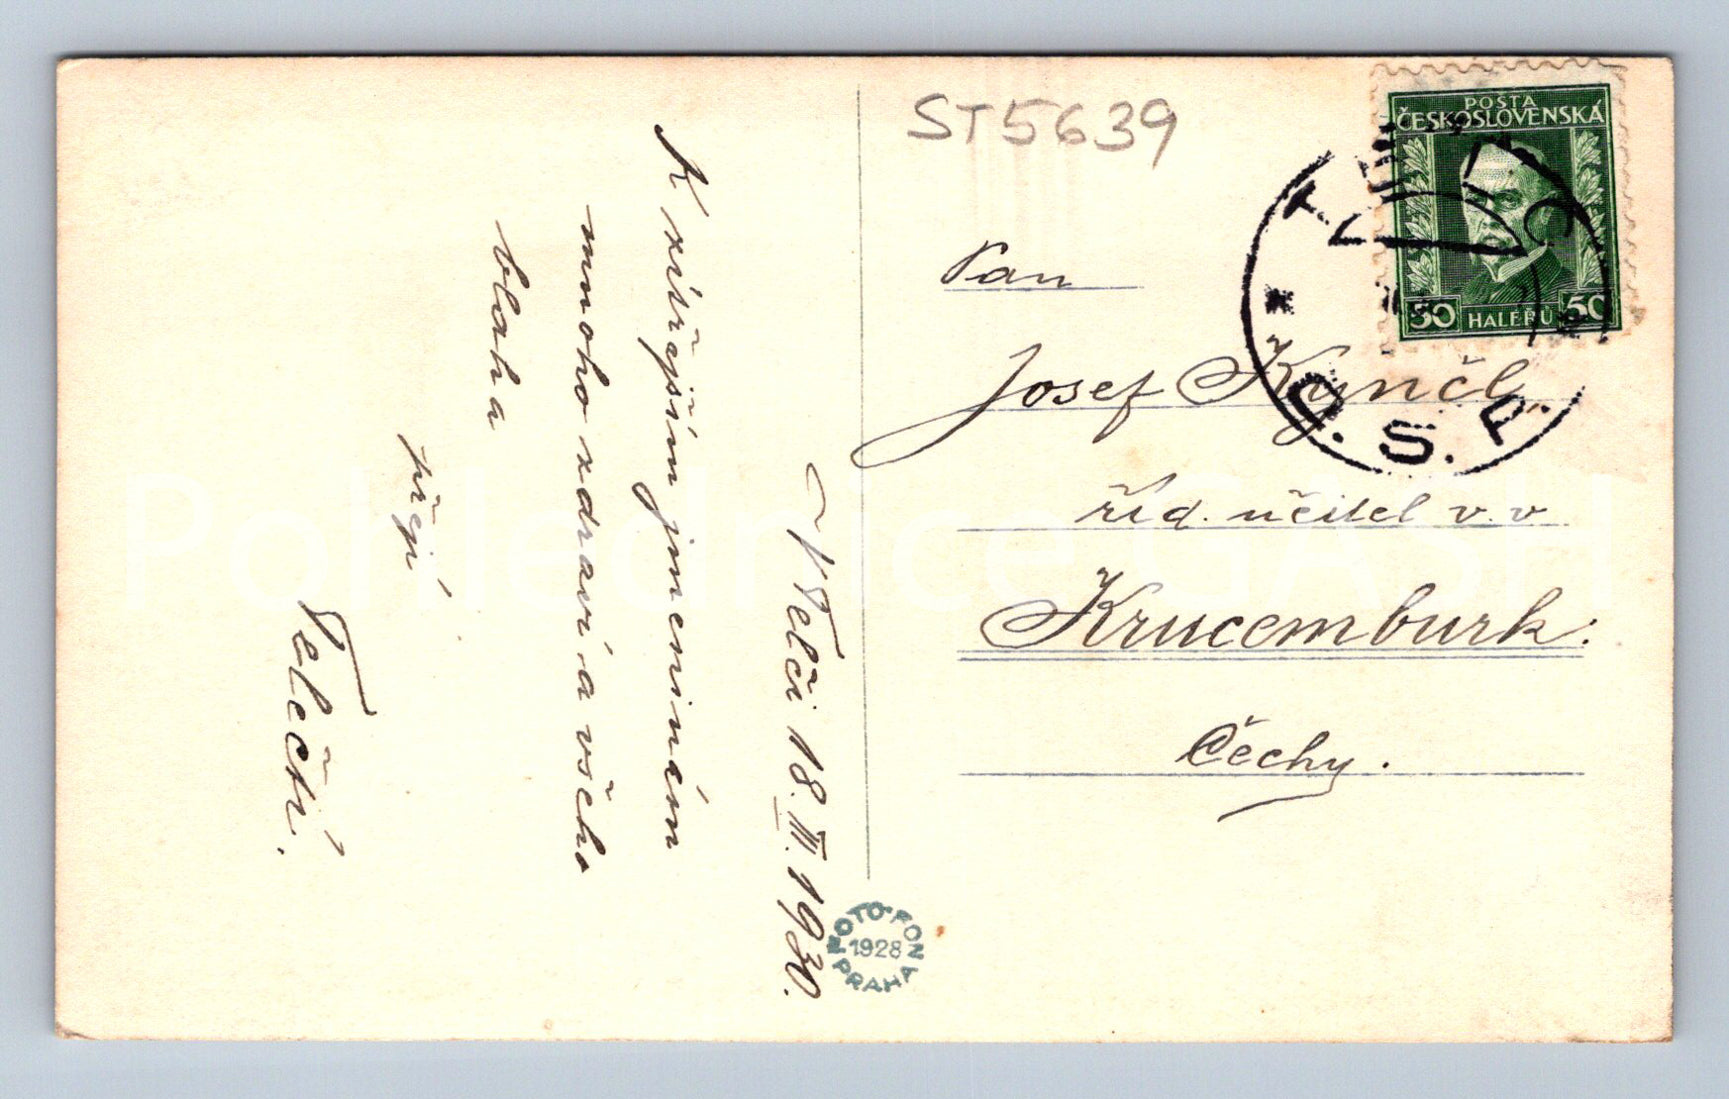 V Telči 18. III. 1930.
K zítřejším jmeninám
mnoho zdraví a všeho
blaha
přejí
Telečtí.
ST5639
POŠTA
ČESKOSLOVENSKÁ
50 HALÉŘŮ 50
Č.S.P.
Pan
Josef Kynčl,
říd. učitel v. v.
Krucemburk.
Čechy.
FOTOFON
1928
PRAHA
Pohlednice GASH